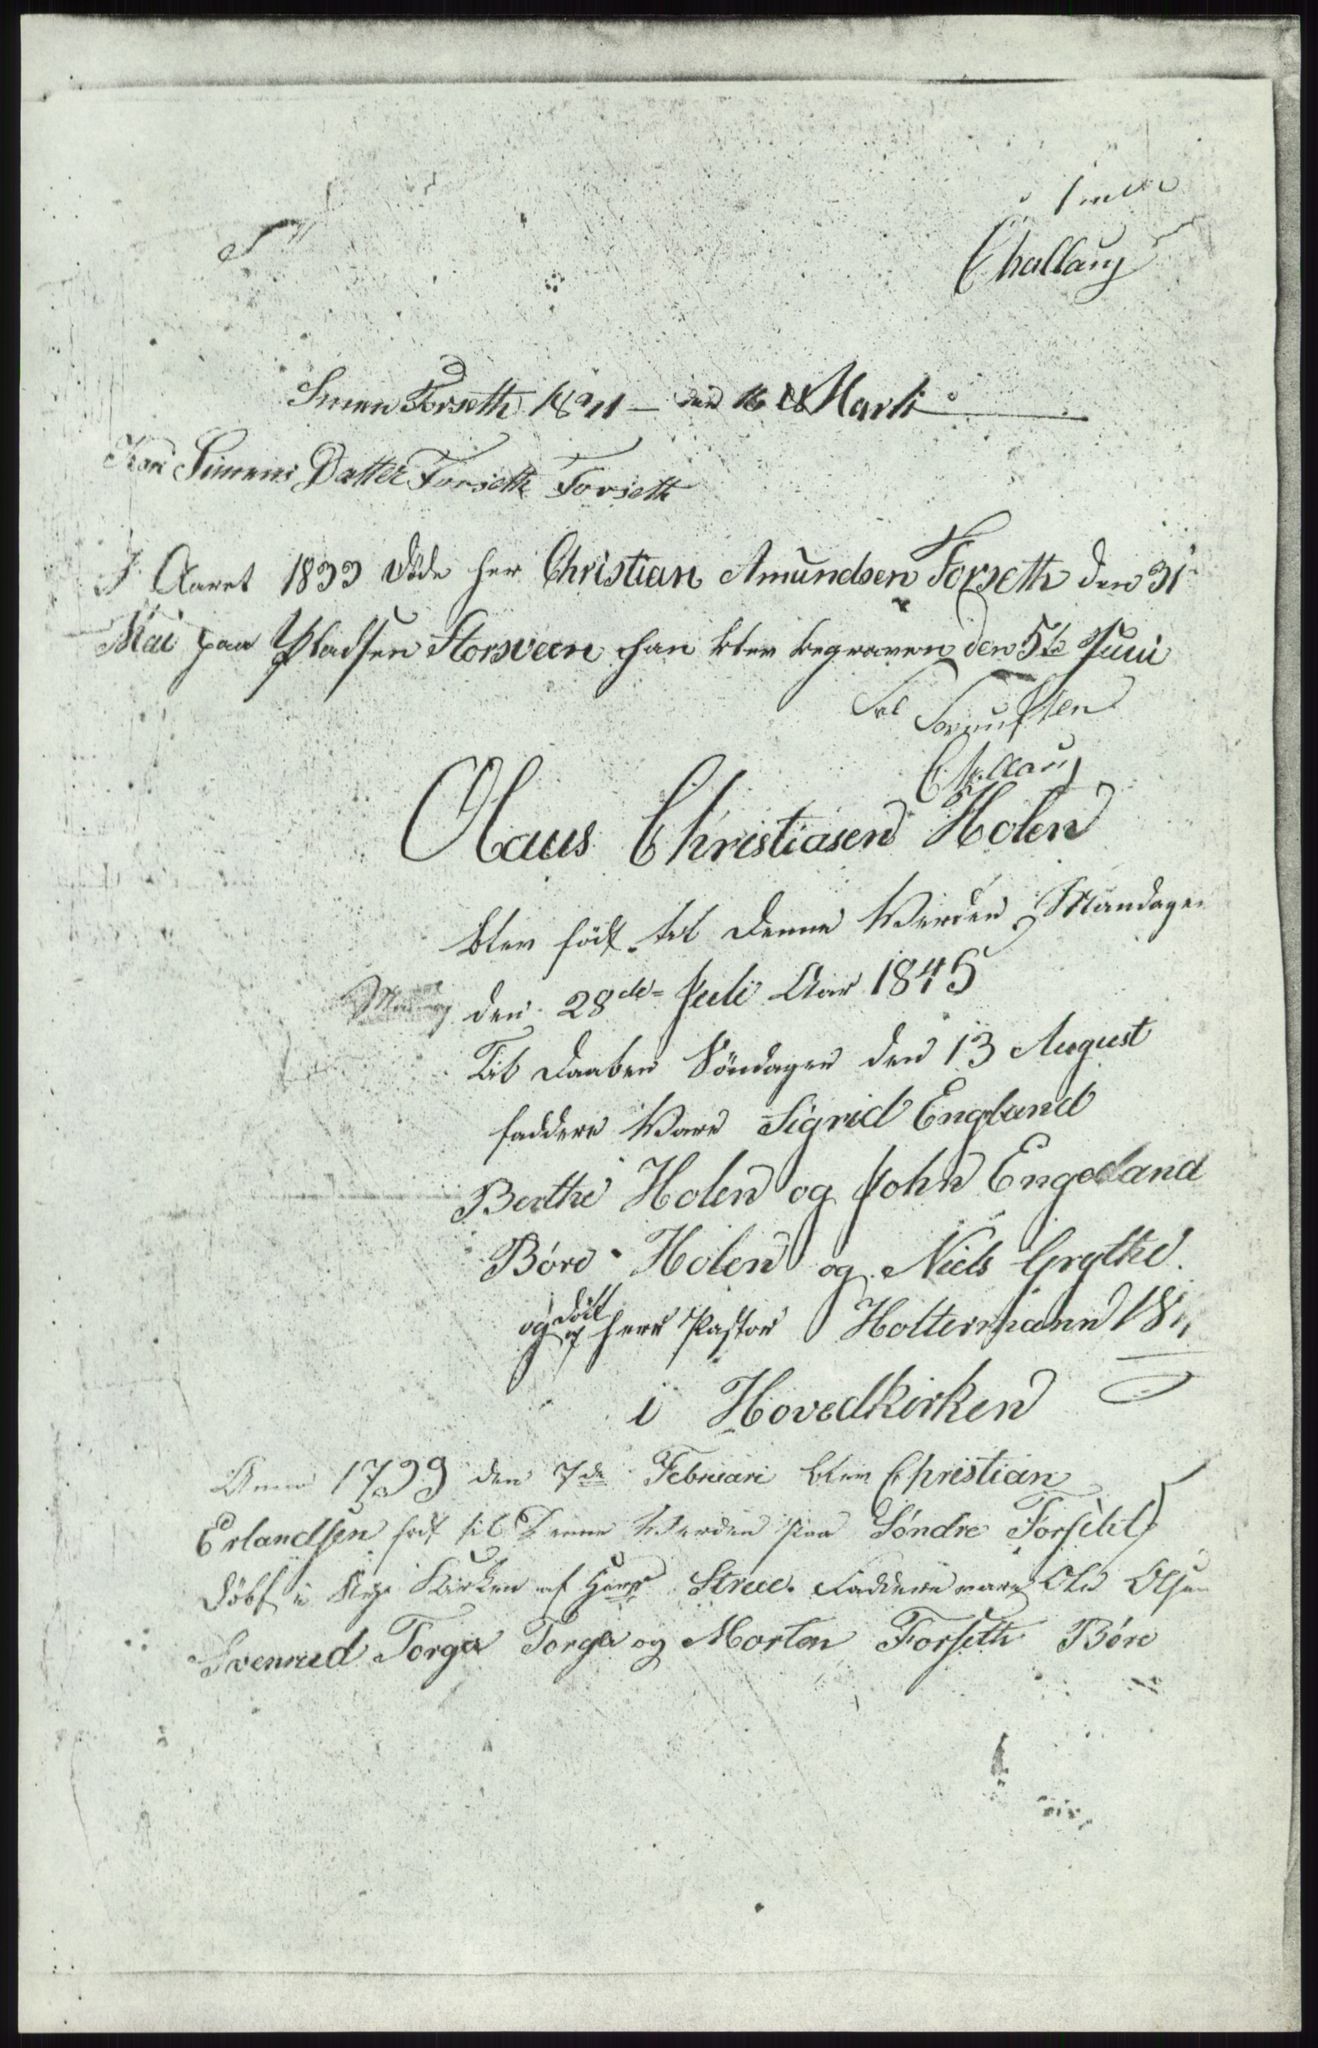 Challaug
Simen Forseth 18 den 16 Marti
Kari Simens Datter Forseth Forseth
I Aaret 1833 døde her Christian Amundsen Forseth den 31
Mai paa Pladsen Storsveen han blev begraven den 5te Juni
Challaug
Olaus Christiasen Holen
blev född til Denne Werden Mandagen
den 28de Juli Aar 1845
Til Daaben Söndagen den 13 August
faddere Ware Sigrid England
Berthe Holen og John Engeland
Børe Holen og Niels Grythe.
og døbt af herr Pastor Holtermann
i Hovedkirken
Anno 1799 den 7de Februari blev Christian
Erlandsen født til Denne Werden paa Søndre Forseth
døbt i Kirken af Herr Strue. Faddere vare Ole Olsen
Svenrud Torger Torge og Morten Forseth Børe